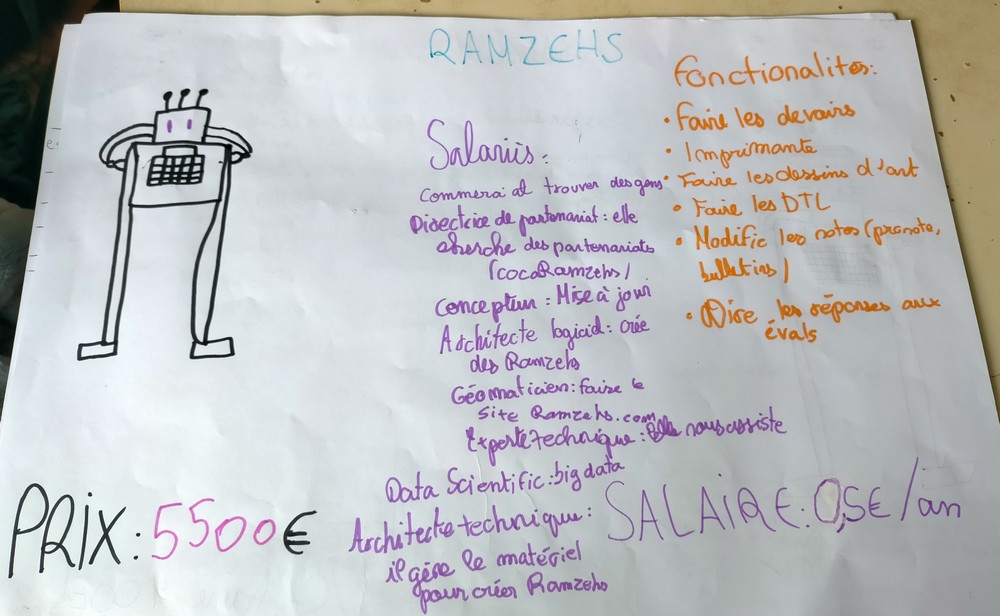 RAMZEHS
Salariés :
Commercial et trouver des gens
Directrice de partenariat : elle
cherche des partenariats
(cocaRamzehs)
Concepteur : Mise à jour
Architecte logiciel : crée
des Ramzehs
Géomaticien : faire le
site Ramzehs.com
Experte technique : Elle nous assiste
Data Scientific : big data
Architecte technique :
il gère le matériel
pour créer Ramzehs
Fonctionalités :
• Faire les devoirs
• Imprimante
• Faire les dessins d'art
• Faire les DTL
• Modific les notes (pronote,
bulletins)
• Dire les réponses aux
évals
PRIX : 5500€
SALAIRE : 0,5€/an